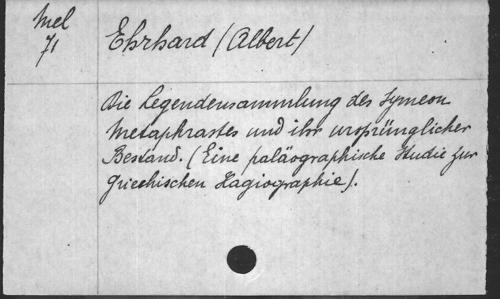 Mel
71
Ehrhard (Albert)
Die Legendensammlung des Symeon
Metaphrastes und ihr ursprünglicher
Bestand. (Eine paläographische Studie zur
griechischen Hagiographie).